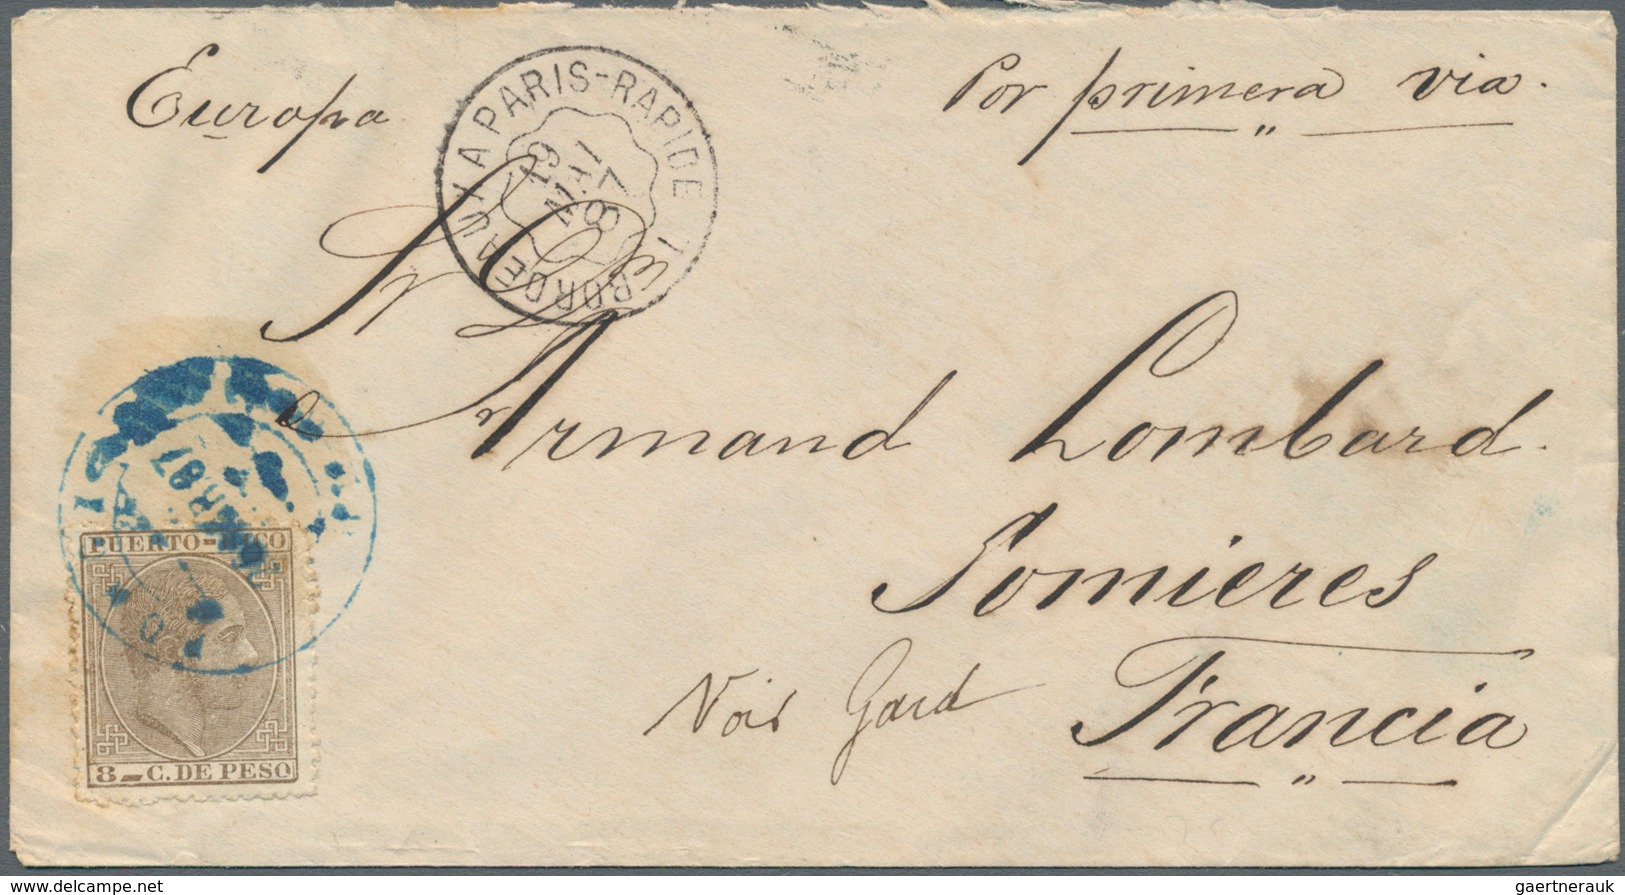 Europa
Por primera via.
BORDEAUX A PARIS-RAPIDE 1E
19
MAI
87
Sr Dn
Armand Lombard.
Somieres
Voir Gard
Francia
87
PUERTO-RICO
8-C. DE PESO
www.delcampe.net
gaertnerauk